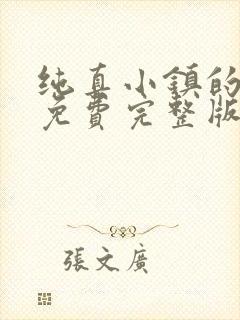 纯真小鎮的
免費完整版
張文廣